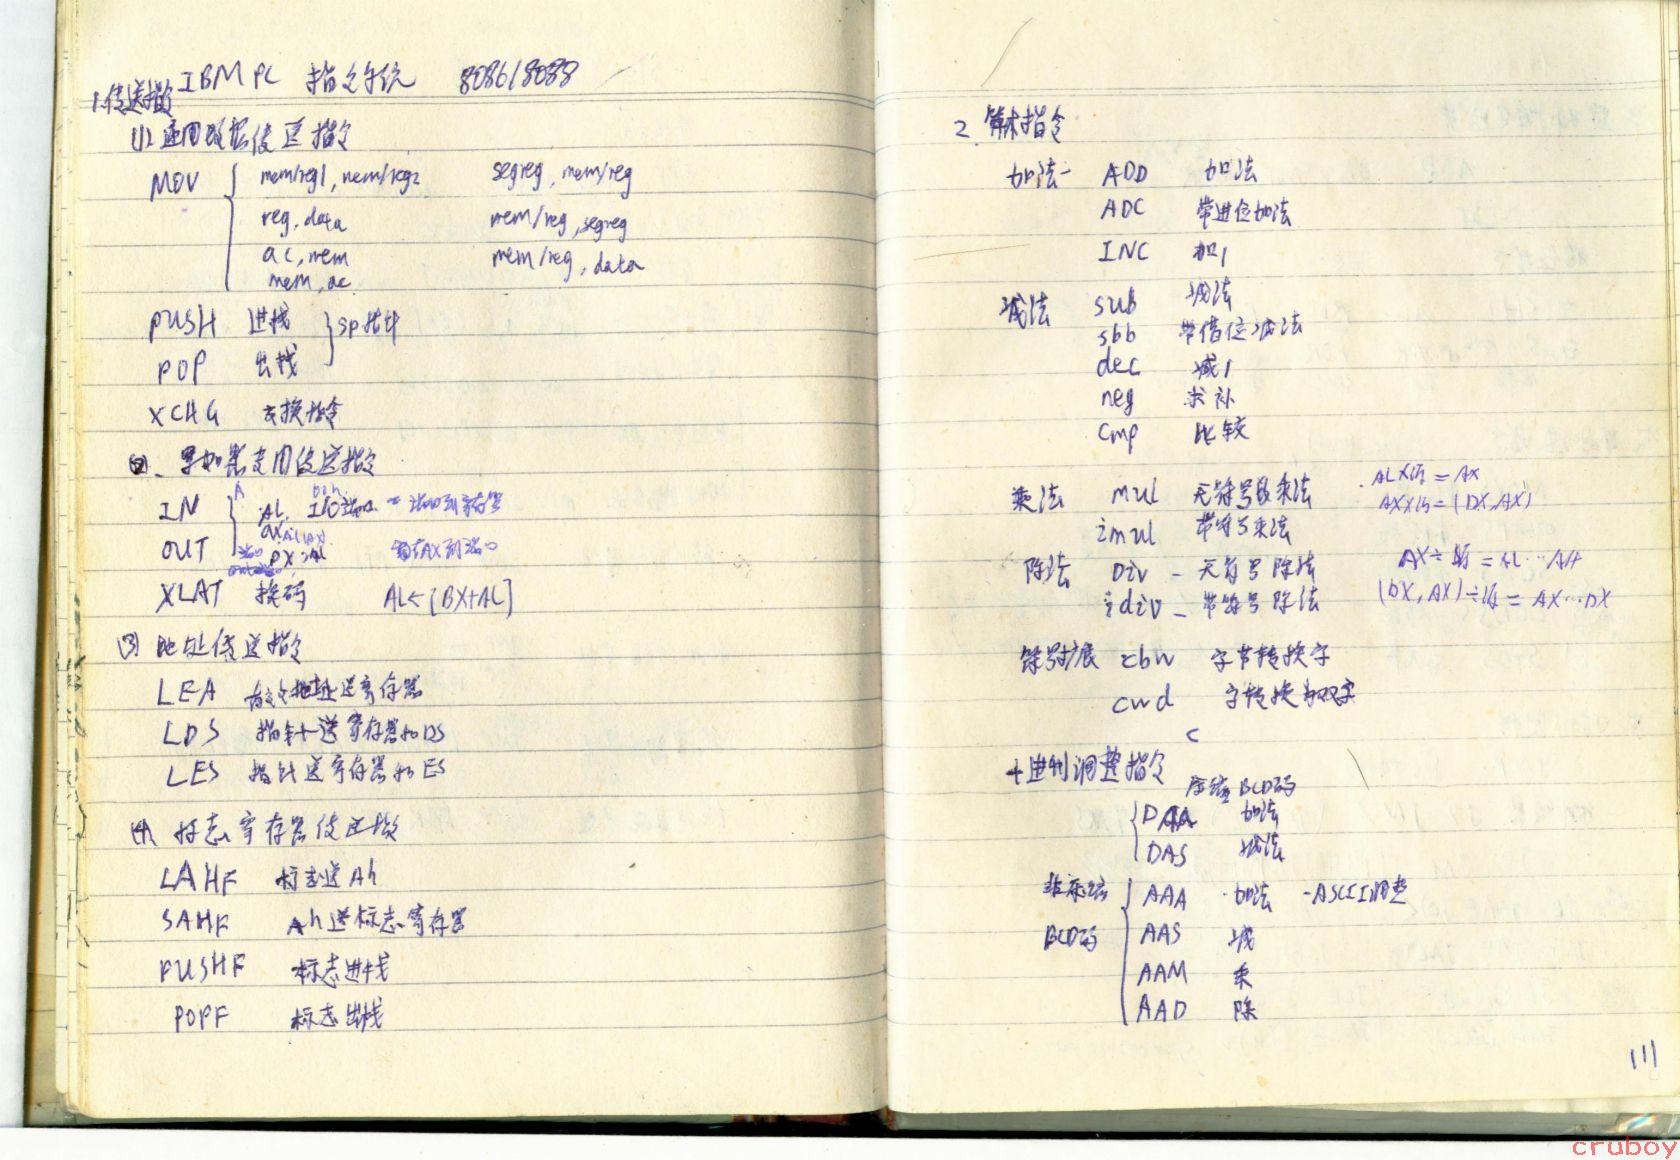 IBM PC 指令系统 8086/8088
1.传送指令
(1) 通用数据传送指令
MOV { mem/reg1, mem/reg2 segreg, mem/reg
reg, data mem/reg, segreg
ac, mem mem/reg, data
mem, ac
PUSH 进栈 } SP指针
POP 出栈
XCHG 交换指令
(2)、累加器专用传送指令
IN { AL, I/O端口 = 端口到寄存器
OUT DX, AL 到端口
XLAT 换码 AL←[BX+AL]
(3) 地址传送指令
LEA 有效地址送寄存器
LDS 指针送寄存器和DS
LES 指针送寄存器和ES
(4) 标志寄存器传送指令
LAHF 标志送Ah
SAHF Ah送标志寄存器
PUSHF 标志进栈
POPF 标志出栈
2. 算术指令
加法- ADD 加法
ADC 带进位加法
INC 加1
减法 sub 减法
sbb 带借位减法
dec 减1
neg 求补
cmp 比较
乘法 mul 无符号数乘法 ALX源=AX
AXX源=(DX,AX)
imul 带符号乘法
除法 Div - 无符号除法 AX÷源=AL…AH
idiv - 带符号除法 (DX,AX)÷源=AX…DX
符号扩展 cbw 字节转换字
cwd 字转换为双字
c
十进制调整指令
压缩BCD码
{ DAA 加法
DAS 减法
非压缩 { AAA 加法 -ASCII调整
BCD码 AAS 减
AAM 乘
AAD 除
111
cruboy